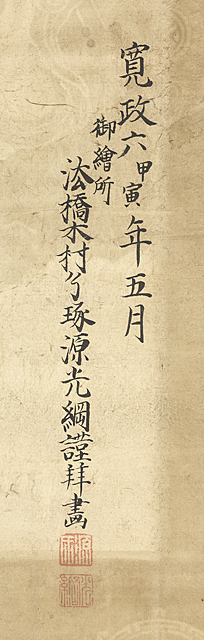 寛政六甲寅年五月
御繪所
法橋木村了琢源光綱謹拜畵